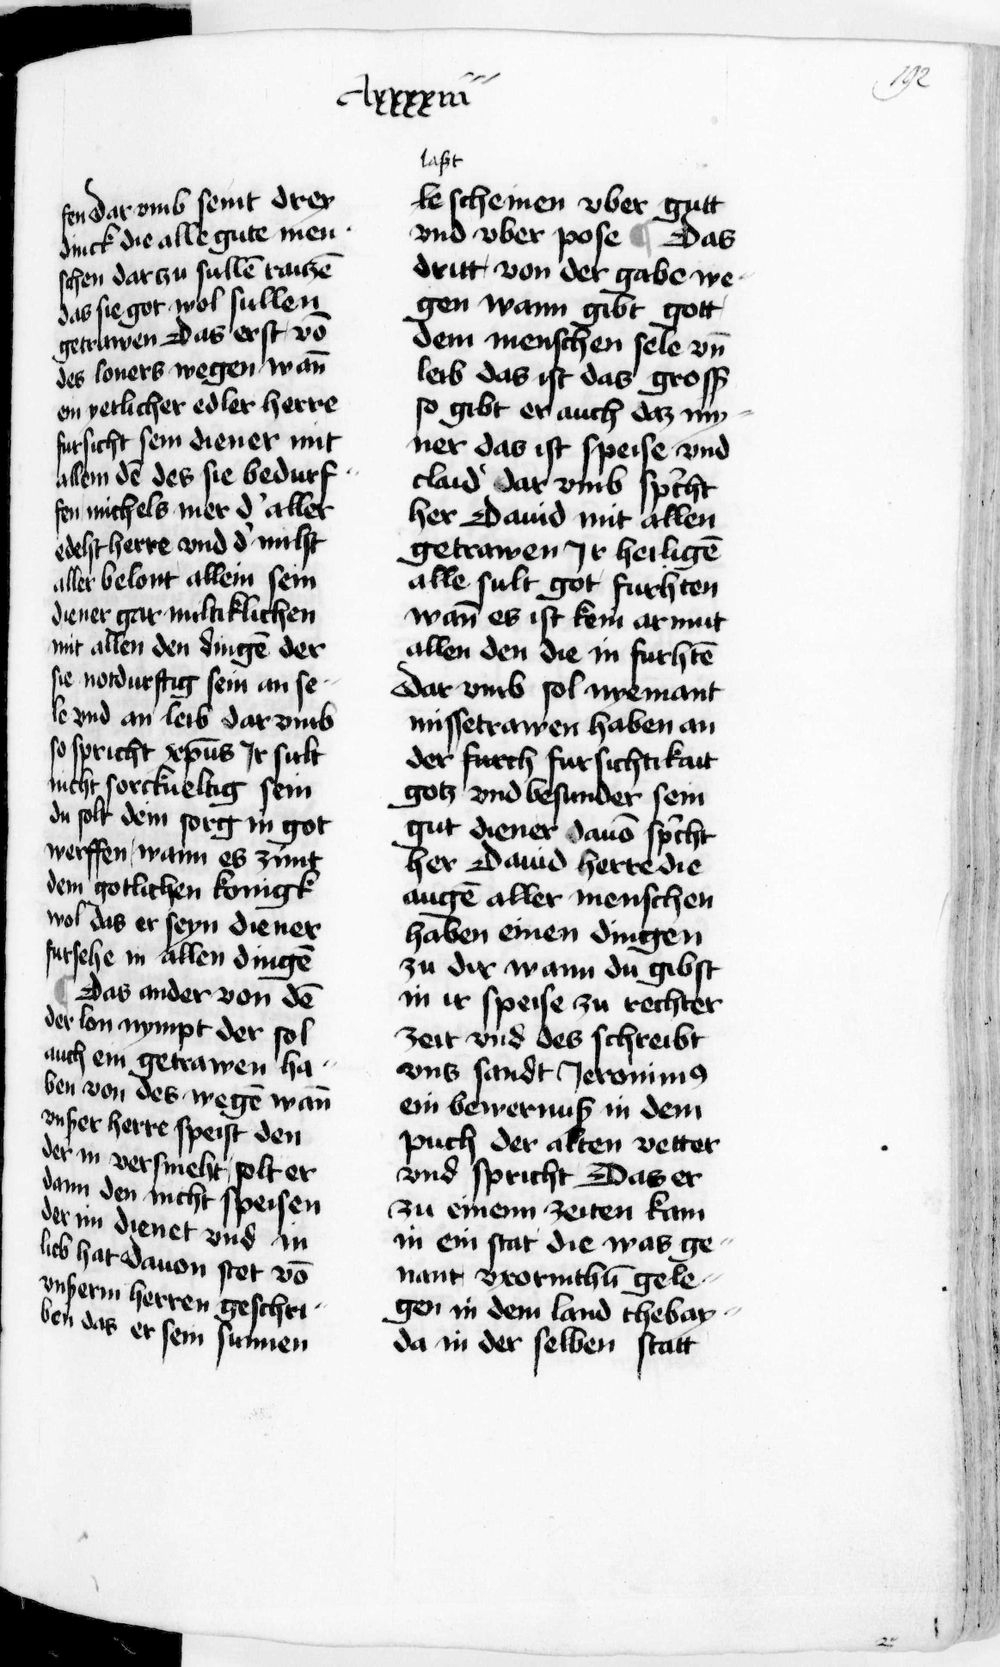 Axxxxiiii
192
fen Dar vmb seint drey
dinck die alle gute men
schen dar zu sullē raitzē
das sie got wol sullen
getrawen Das erst vō
des loners wegen wañ
ein yetlicher edler herre
fursicht sein diener mit
allem dē des sie bedurf
fen michels mer d' aller
edelst herre vnd d' milst
aller belont allein sein
diener gar miltiklichen
mit allen den dingē der
sie notdurftig sein an se
le vnd an leib dar vmb
so spricht xp̄us Ir sult
nicht sorckueltig sein
du solt dein sorg in got
werffen wann es zimt
dem gotlichen konigk
wol das er seyn diener
fursehe in allen dingē
Das ander von dē
der lon nympt der sol
auch ein getrawen ha
ben von des wegē wañ
vnßer herre speist den
der in versmeht solt er
dann den nicht speisen
der im dienet vnd in
lieb hat Dauon stet vō
vnßerm herren geschri
ben das er sein sunnen
laßt
le scheinen vber gutt
vnd vber pose ¶ Das
dritt von der gabe we
gen wann gibt gott
dem menschen sele vñ
leib das ist das gross
so gibt er auch daz my
ner das ist speise vnd
claid' dar vmb sp̄cht
her Dauid mit allen
getrawen Ir heiligē
alle sult got furhten
wañ es ist kein armut
allen den die in furhtē
Dar vmb sol nyemant
missetrawen haben an
der furch fursichtikait
gotz vnd besunder sein
gut diener dauō sp̄cht
her Dauid herre die
augē aller menschen
haben einen dingen
zu dir wann du gibst
in ir speise zu rechter
zeit vnd des schreibt
vns sandt Jeronimꝰ
ein bewernuß in dem
puch der alten vetter
vnd spricht Das er
zu einem zeiten kam
in ein stat die was ge
nant vxorinthū gele
gen in dem land thebay
da in der selben statt